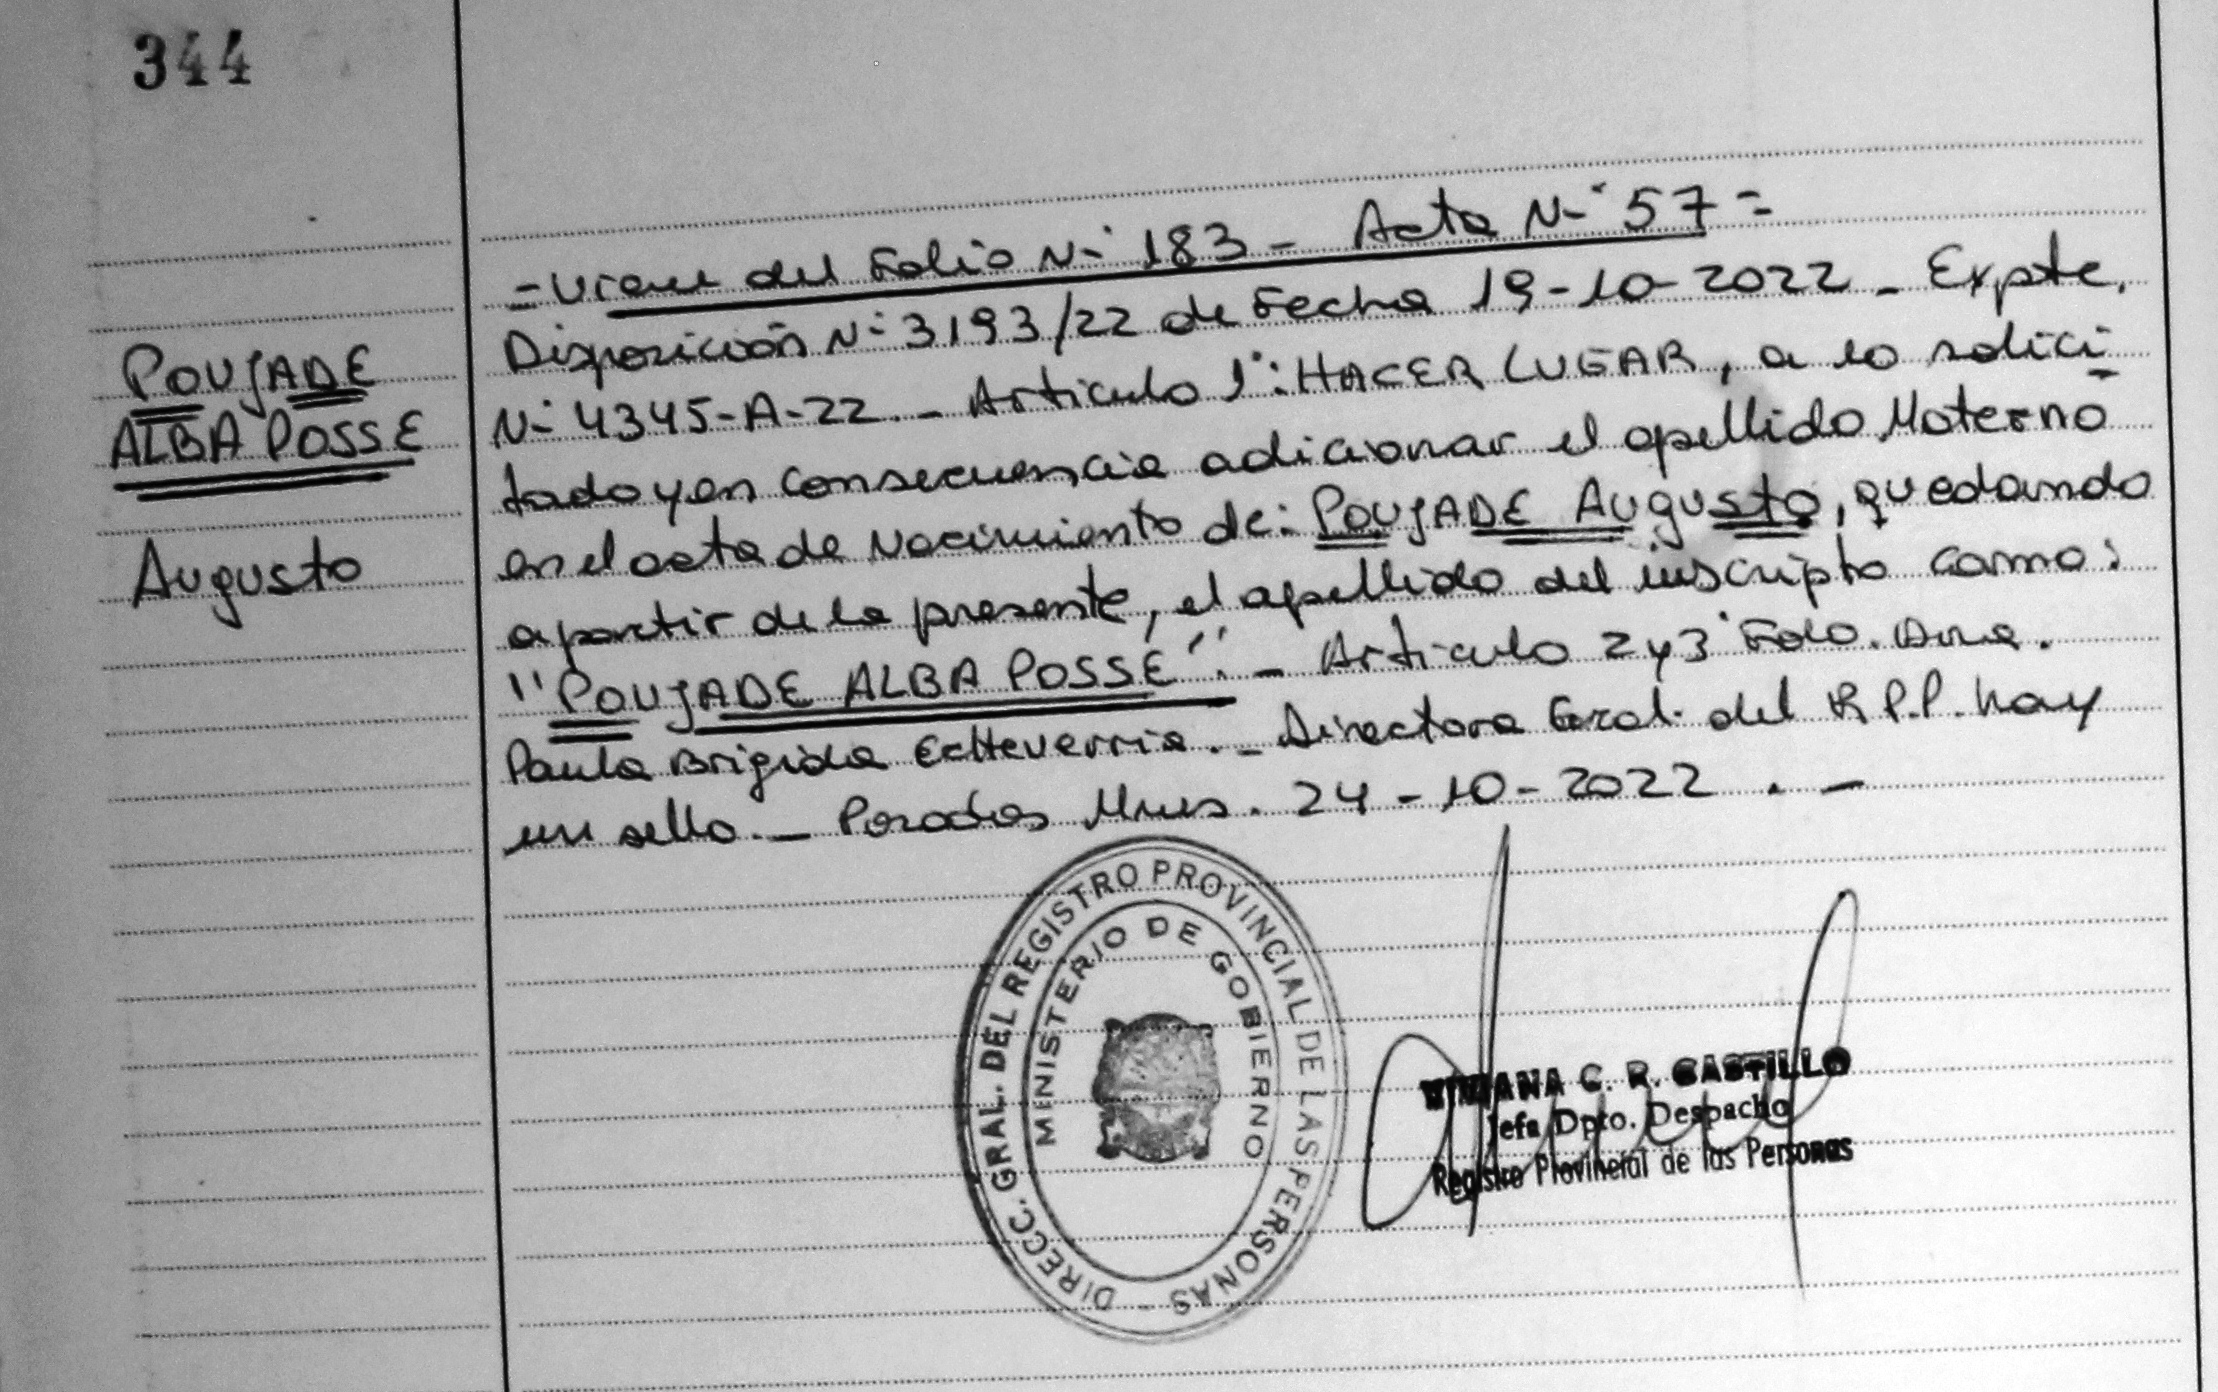 344
POUJADE
ALBA POSSE
Augusto
- Viene del Folio N° 183 - Acta N° 57 =
Disposición N° 3193/22 de Fecha 19-10-2022 - Expte.
N° 4345-A-22. - Articulo 1°: HACER LUGAR, a lo solici
tado y en consecuencia adicionar el apellido Materno
en el acta de Nacimiento de: POUJADE AUgUSto, quedando
a partir de la presente, el apellido del inscripto como:
"POUJADE ALBA POSSE". - Articulo 2 y 3° Fdo. Dra.
Paula Brigida Echeverria. - Directora Gral. del R.P.P. hay
un sello. - Posadas Mnes. 24-10-2022. -
DIRECC. GRAL. DEL REGISTRO PROVINCIAL DE LAS PERSONAS -
MINISTERIO DE GOBIERNO
VIVIANA C. R. CASTILLO
Jefa Dpto. Despacho
Registro Provincial de las Personas